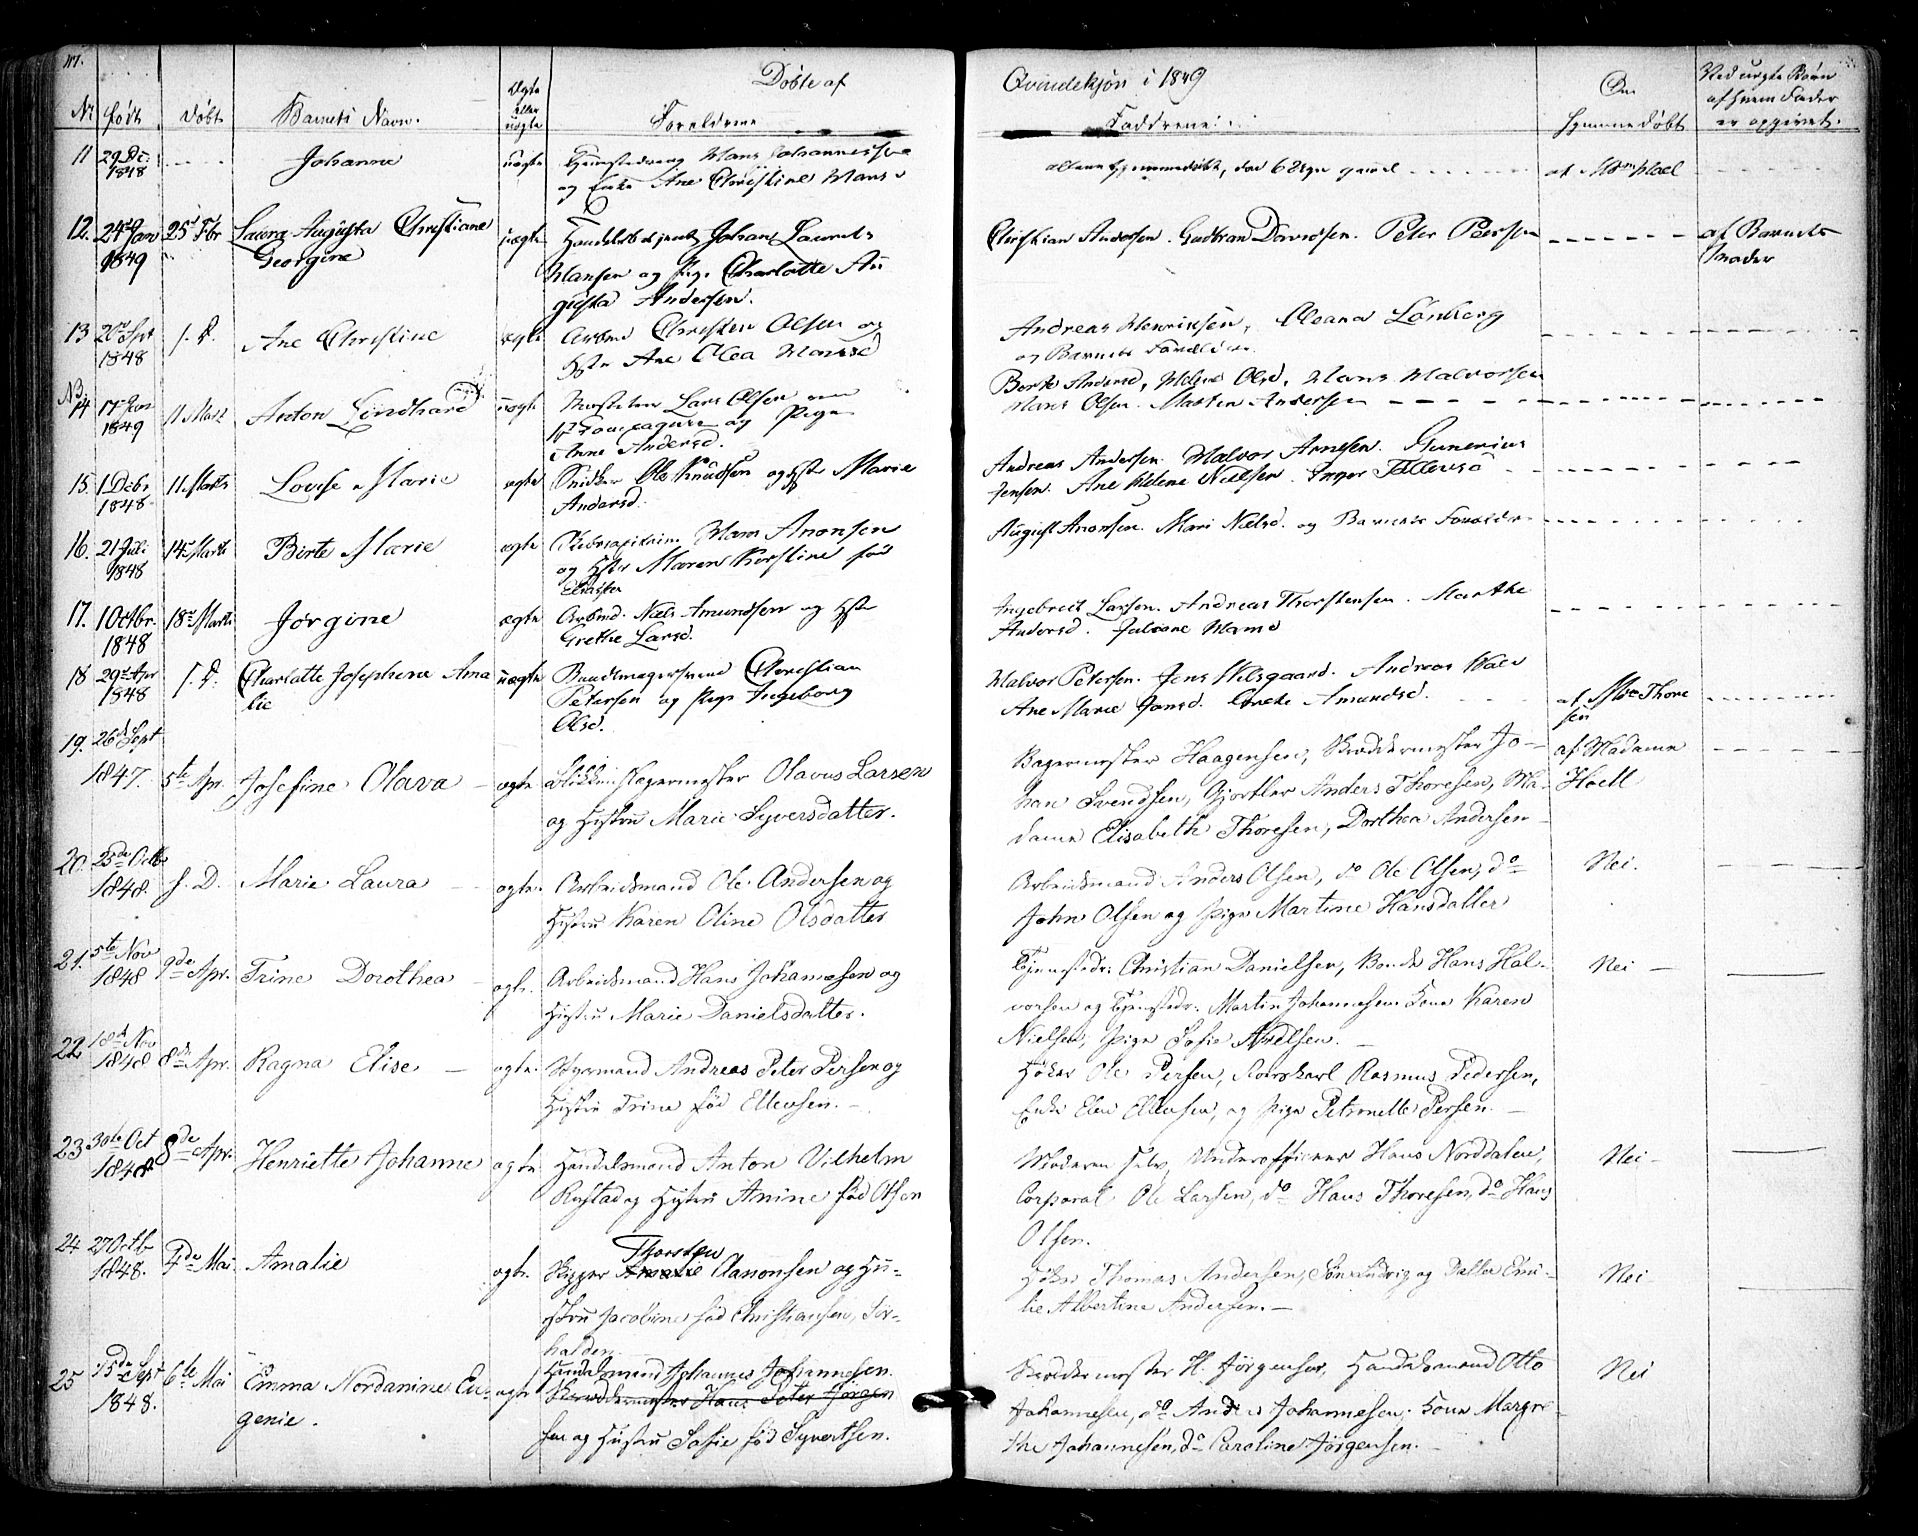 Døbte af Qvindekjøn i 1849
Nr Født Døbt Barnets Navn. Ægte eller uægte Foreldrene Faddrene Om Hjemmedøbt Ved uægte Børn af hvem Fader er opgivet.
11 29 De: 1848 Johanne uægte Hans Johannesse
og Enke Ane Christine Hans
af Md Hoel
12. 24 Jan 1849 25 Fbr Laura Augusta Christiane Georgine uægte Handelsbetjent Johan Laurets
Hansen og Pige Charlotte Au
gusta Andersen.
Christian Andersen. Gudbran Davidsen. Peter Peersen
af Barnets Moder
13 20 Spt 1848 s. D. Ane Christine ægte Arbmd Christen Olsen og
Hstr Ane Olea Hansd
Andreas Henriksen, Oleana Lønberg
og Barnets Forældre
NB 14 17 Jan 1849 11 Marts Anton Lindhard uægte Lars Olsen
og Pige
Anne Andersd.
Berte Andersd, Helene Olsd, Hans Halvorsen
Hans Olsen. Martin Andersen
15. 1 Debr 1848 11 Marts Lovise Marie ægte Snidker Ole Knudsen og Hstr Marie
Andersd.
Andreas Andersen. Halvor Arnesen. Gunerius
Jensen. Ane Helene Nielsen. Inger Tollevsd
16. 21 Juli 1848 14 Marts Birte Marie ægte Skibscapitain Hans Anonsen
og Hstr Maren Kirstine fød
Eliassen
August Anonsen. Mari Nielsd. og Barnets Forældre
17. 1 Octbr. 1848 18 Marts Jørgine ægte Arbmd. Niels Amundsen og Hstr
Grethe Larsd.
Ingebreit Larsen. Andreas Thorstensen. Marthe
Andersd. Juliane Hansd
18 29 Apr 1848 s. D. Charlotte Josephine Ama
lie uægte Bundtmagersvend Christian
Petersen og Pige Ingeborg
Olsd.
Halvor Petersen. Jens Hilsgaard. Andreas
Ane Marie Jansd. Grethe Amundsd.
af Mde Thore
sen
19. 26 Sept 1847. 5te Apr. Josefine Olava ægte Blikkenslagermester Olavus Larsen
og Hustru Marie Syversdatter.
Bagermester Haagensen, Skreddermester Jo-
han Svendsen, Gjørtler Anders Thoresen, Ma-
dame Elisabeth Thoresen, Dorthea Andersen
af Madame Hoell
20. 25de Octb 1848. s. D. Marie Laura ægte. Arbeidsmand Ole Andersen og
Hustru Karen Oline Olsdatter
Arbeidsmand Anders Olsen, do Ole Olsen, do
John Olsen og Pige Martine Hansdatter
Nei.
21. 5te Nov 1848 9de Apr. Trine Dorothea ægte. Arbeidsmand Hans Johannesen og
Hustru Marie Danielsdatter.
Tjenstedr: Christian Danielsen, Bonde Hans Hal-
vorsen og Tjenstedr: Martin Johannesen Kone Karen
Nielsen, Pige Sofie Nielsen.
Nei
22 18d Nov 1848 8de Apr. Ragna Elise ægte. Styrmand Andreas Peter Persen og
Hustru Trine fød Ellensen.
Høker Ole Persen, Rorskarl Rasmus Pedersen,
Enke Elen Ellensen, og Pige Petronelle Persen.
23 30te Oct 1848 8de Apr. Henriette Johanne ægte Handelsmand Anton Vilhelm
Rustad og Hustru Anine fød Olsen
Moderen selv, Underofficer Hans Norddalen,
Corporal Ole Larsen, do Hans Thoresen, do Hans
Olsen.
Nei
24 27 Octb 1848. 4de Mai Amalie ægte. Thorsten
Skipper Amalie Aanonsen og Hu-
stru Jacobine fød Christiansen, For-
halden
Høker Thomas Andersen, Søn Ludvig og Datter Emi-
lie Albertine Andersen.
Nei
25 15de Sept 1848. 6te Mai Emma Nordanine Eu-
genie. ægte Handelsmand Johannes Johannesen.
Skreddermester Hans Peter Jørgen
sen og Hustru Sofie fød Syvertsen.
Skreddermester H. Jørgensen, Handelsmand Otto
Johannesen, do Anders Johannesen. Kone Margre-
the Johannesen, do Caroline Jørgensen.
Nei